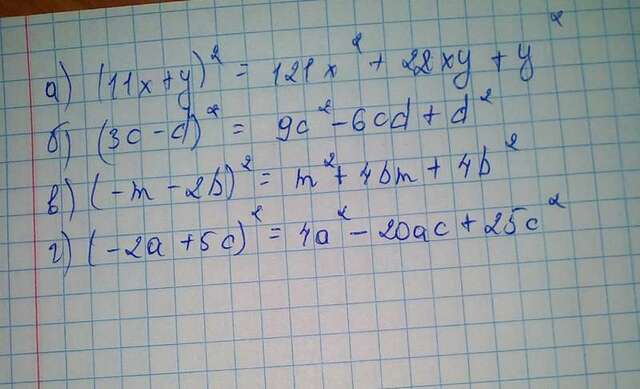 а) (11x+y)² = 121x² + 22xy + y²
б) (3c-d)² = 9c² - 6cd + d²
в) (-m - 2b)² = m² + 4bm + 4b²
г) (-2a +5c)² = 4a² - 20ac + 25c²